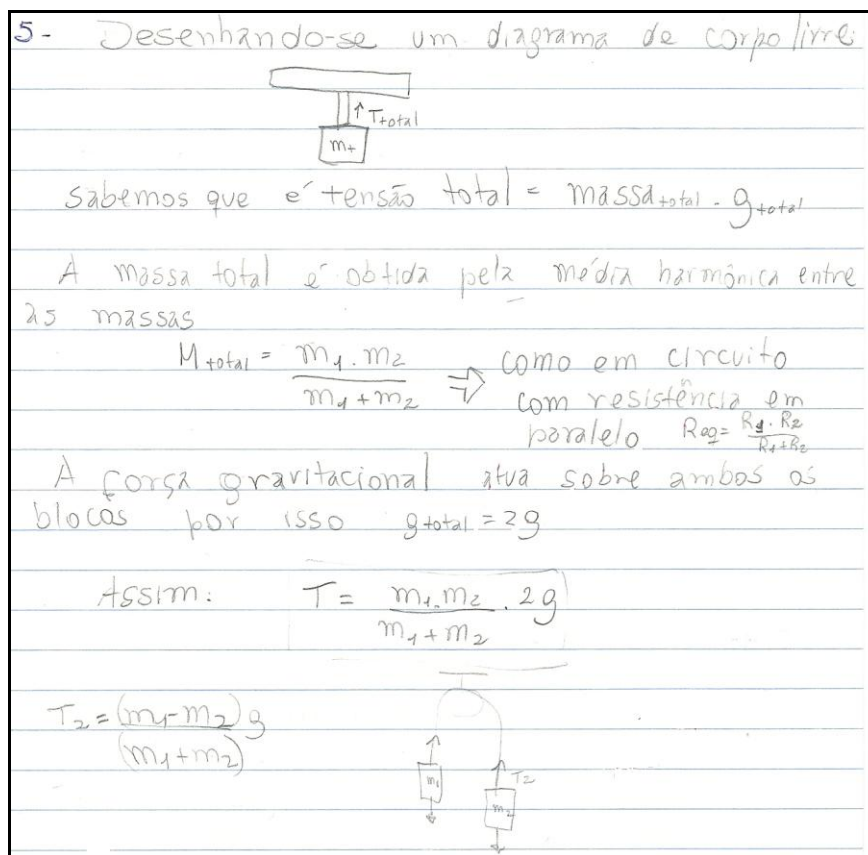 5- Desenhando-se um diagrama de corpo livre:
↑ Ttotal
mt
Sabemos que é tensão total = massa total . g total
A massa total é obtida pela média harmônica entre
as massas
M total = m1 . m2 / m1 + m2 ⇒ como em circuito
com resistência em
paralelo Req = R1 . R2 / R1 + R2
A força gravitacional atua sobre ambos os
blocos por isso g total = 2g
Assim: T = m1 . m2 / m1 + m2 . 2g
T2 = (m1 - m2) g / (m1 + m2)
m1
T2
m2